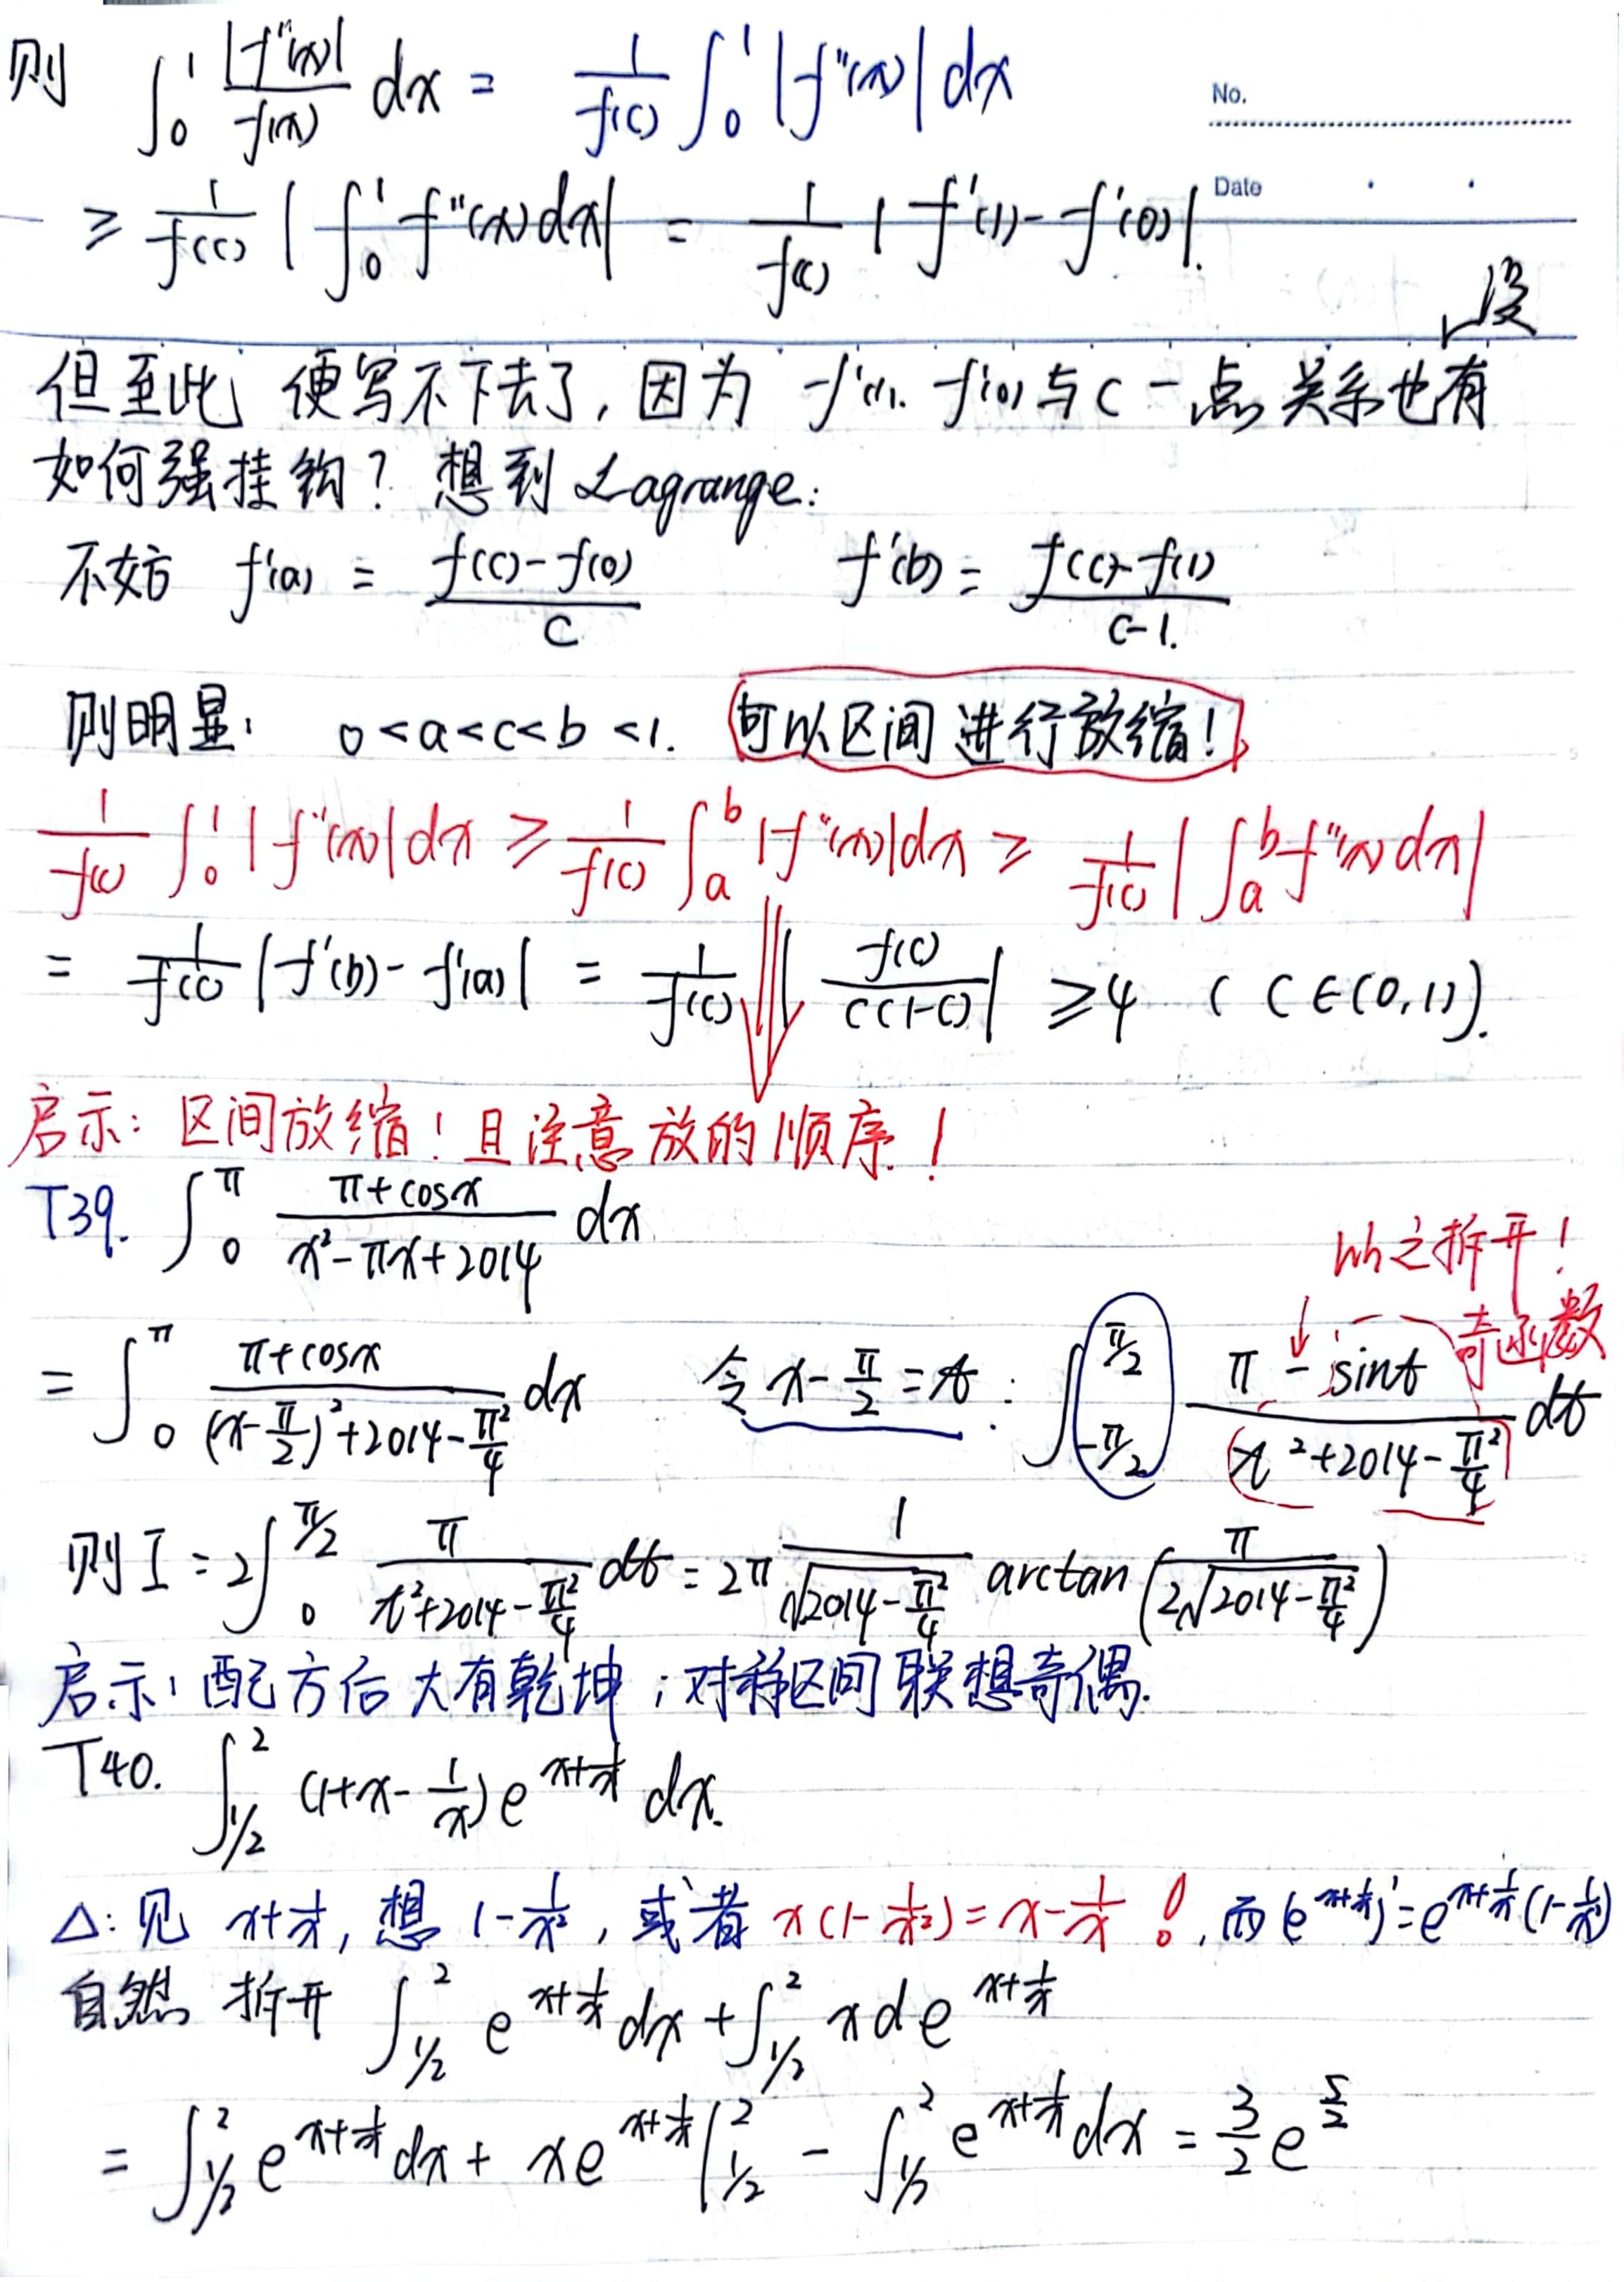 No.
Date
则 ∫₀¹ |f''(x)|/f(x) dx = 1/f(c) ∫₀¹ |f''(x)| dx
≥ 1/f(c) | ∫₀¹ f''(x)dx| = 1/f(c) | f'(1)-f'(0)|.
但至此 便写不下去了, 因为 f'(1). f'(0)与c一点关系也没有
如何强挂钩? 想到 Lagrange:
不妨 f'(a) = (f(c)-f(0))/c f'(b) = (f(c)-f(1))/(c-1).
则明显: 0<a<c<b<1. 可以区间进行放缩!
1/f(c) ∫₀¹ |f''(x)|dx ≥ 1/f(c) ∫ₐᵇ |f''(x)|dx ≥ 1/f(c) | ∫ₐᵇ f''(x)dx|
= 1/f(c) |f'(b)-f'(a)| = 1/f(c) | f(c)/(c(1-c)) | ≥4 ( c∈(0,1)).
启示: 区间放缩! 且注意放的顺序!
T39. ∫₀^π (π+cosx)/(x²-πx+2014) dx
之拆开!
奇函数
= ∫₀^π (π+cosx)/((x-π/2)²+2014-π²/4) dx 令 x-π/2=t : ∫_{-π/2}^{π/2} (π-sint)/(t²+2014-π²/4) dt
则 I = 2∫₀^{π/2} π/(t²+2014-π²/4) dt = 2π 1/√(2014-π²/4) arctan(π/(2√(2014-π²/4)))
启示: 配方后大有乾坤; 对称区间联想奇偶.
T40. ∫_{1/2}^2 (1+x-1/x)e^{x+1/x} dx.
△: 见 x+1/x, 想 1-1/x², 或者 x(1-1/x²)=x-1/x !, 而(e^{x+1/x})'=e^{x+1/x}(1-1/x²)
自然 拆开 ∫_{1/2}^2 e^{x+1/x}dx + ∫_{1/2}^2 x d e^{x+1/x}
= ∫_{1/2}^2 e^{x+1/x}dx + xe^{x+1/x}|_{1/2}^2 - ∫_{1/2}^2 e^{x+1/x}dx = 3/2 e^{5/2}